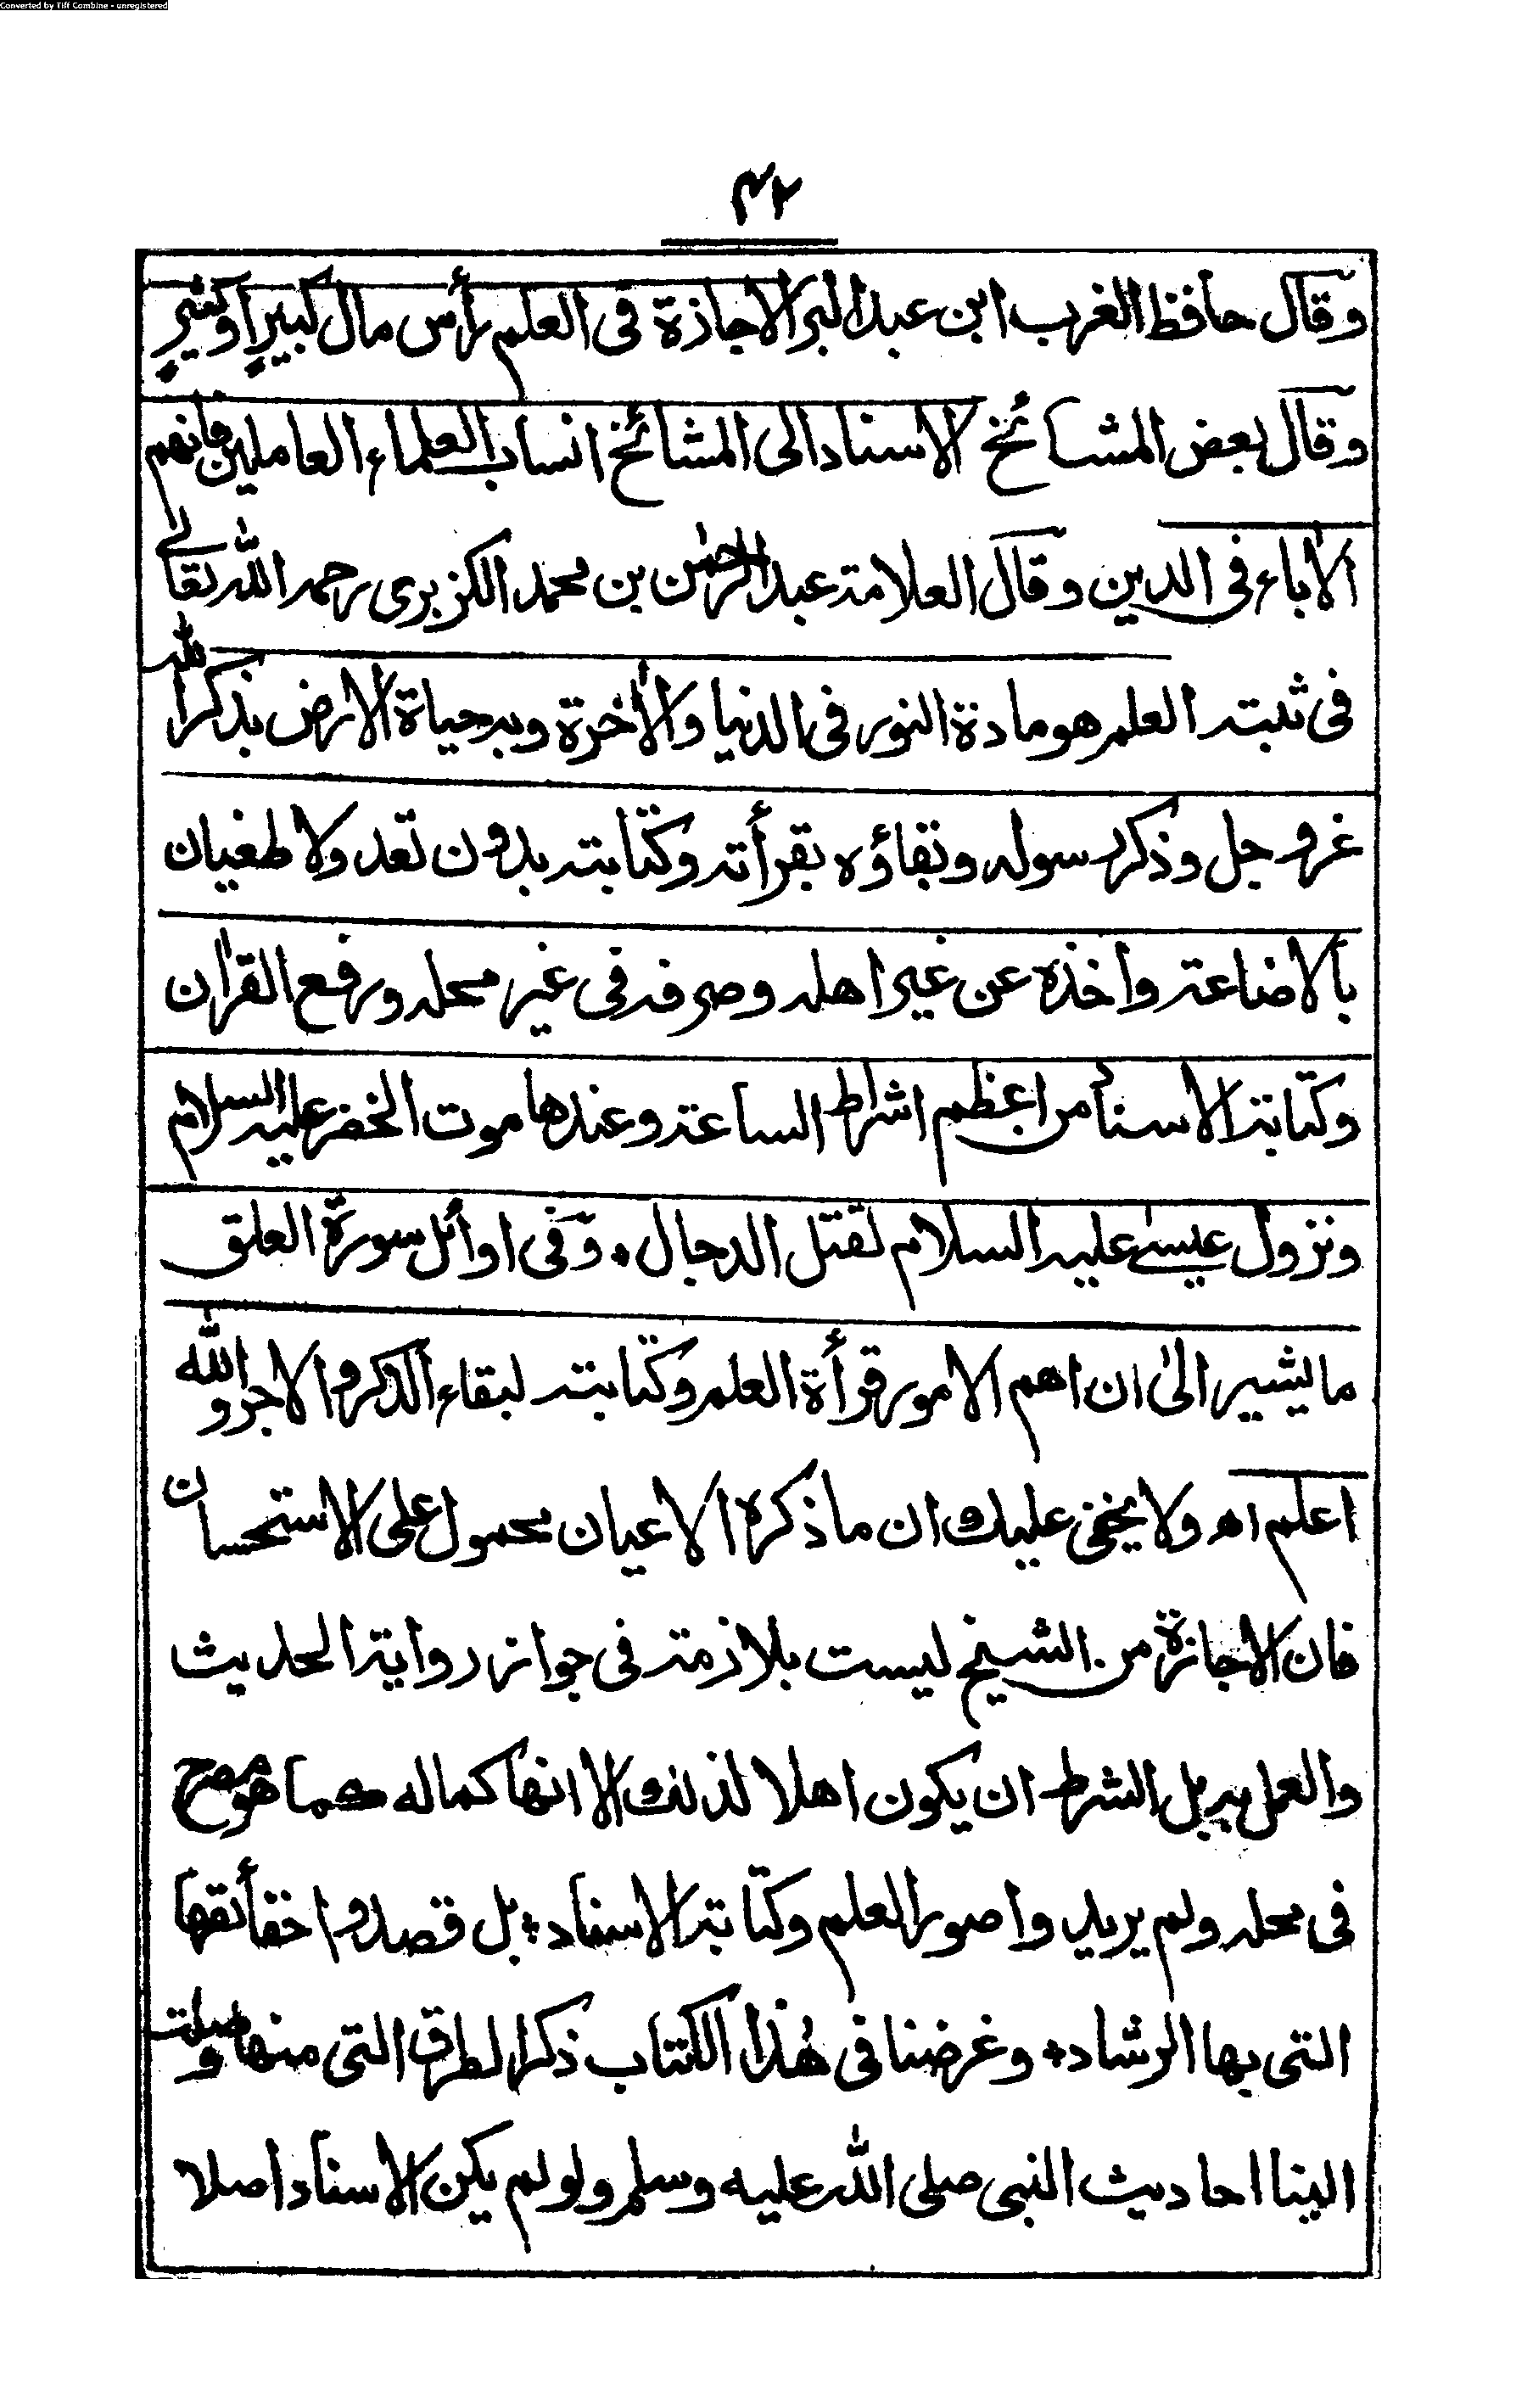 Converted by Tiff Combine - unregistered
۴۲
وقال حافظ الغرب ابن عبدالبر الاجازة فى العلم رأس مال كبير اوكثير
وقال بعض المشائخ الاسناد الى المشائخ انساب العلماء العاملين فانهم
الأباء فى الدين وقال العلامة عبدالرحمٰن بن محمد الكزبرى رحمه الله تعالےٰ
فى ثبته العلم هو مادة النور فى الدنيا والأخرة وبه حياة الارض بذكر الله
عزوجل وذكر رسوله وبقاؤه بقرأته وكتابته بدون تعد ولا طغيان
بالاضاعة واخذه عن غير اهله وصرفه فى غير محله ورفع القرأن
وكتابة الاسناد من اعظم اشراط الساعة وعندها موت الخضر عليه السلام
ونزول عيسےٰ عليه السلام لقتل الدجال ۰ وفى اوائل سورة العلق
ما يشير الىٰ ان اهم الامور قرأة العلم وكتابته لبقاء الذكر والاجر والله
اعلم اه ولا يخفى عليك ان ما ذكره الاعيان محمول على الاستحسان
فان الاجازة من الشيخ ليست بلازمة فى جواز رواية الحديث
والعمل به بل الشرط ان يكون اهلا لذلك الا انها كماله كما هو مصرح
فى محله ولم يريدوا صور العلم وكتابة الاسناد ؛ بل قصدوا حقائقها
التى بها الرشاد ؛ وغرضنا فى هٰذا الكتاب ذكر الطرق التى منها وصلت
الينا احاديث النبى صلى الله عليه وسلم ولو لم يكن الاسناد اصلا